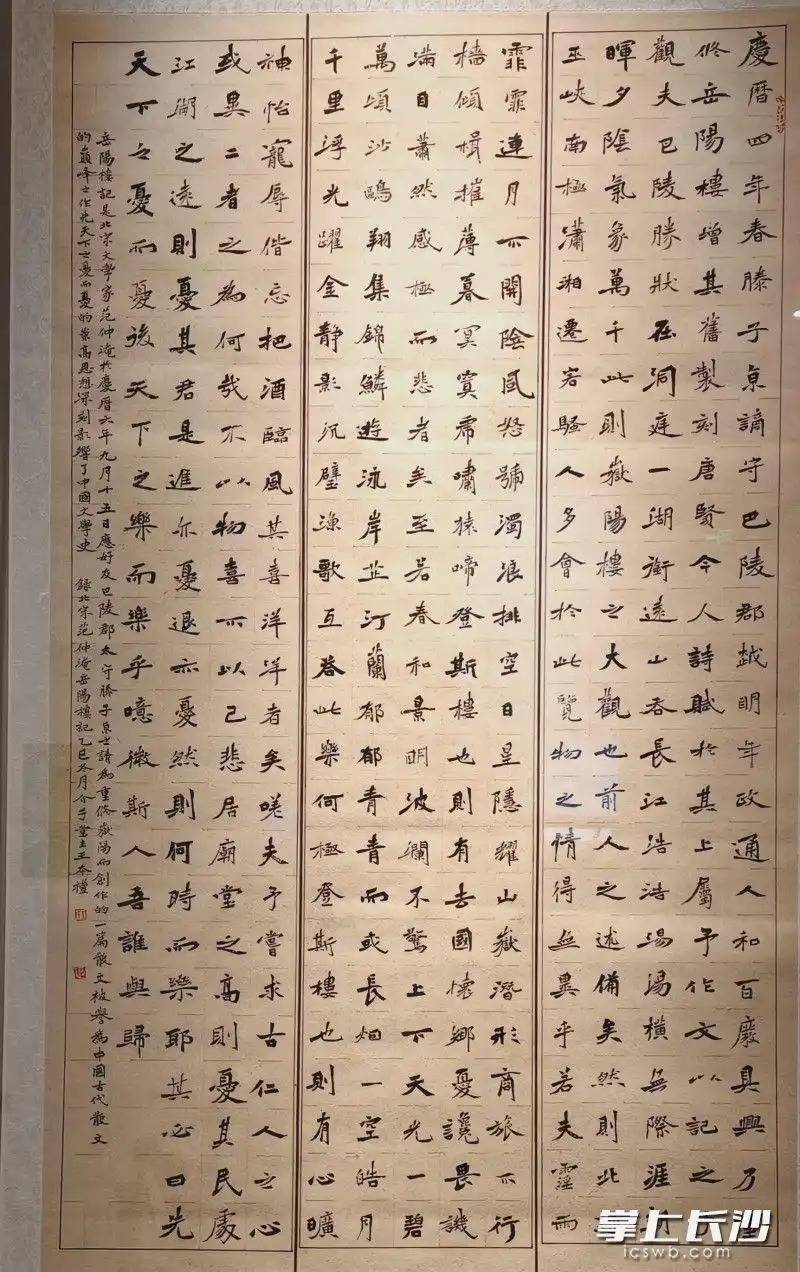 慶曆四年春滕子京謫守巴陵郡越明年政通人和百廢具興乃重
修岳陽樓增其舊製刻唐賢今人詩賦於其上屬予作文以記之
觀夫巴陵勝狀在洞庭一湖銜遠山吞長江浩浩湯湯橫無際涯朝
暉夕陰氣象萬千此則嶽陽樓之大觀也前人之述備矣然則北
巫峽南極瀟湘遷客騷人多會於此覽物之情得無異乎若夫霪雨
霏霏連月不開陰風怒號濁浪排空日星隱耀山嶽潛形商旅不行
檣傾楫摧薄暮冥冥虎嘯猿啼登斯樓也則有去國懷鄉憂讒畏譏
滿目蕭然感極而悲者矣至若春和景明波瀾不驚上下天光一碧
萬頃沙鷗翔集錦鱗遊泳岸芷汀蘭郁郁青青而或長烟一空皓月
千里浮光躍金靜影沉璧漁歌互答此樂何極登斯樓也則有心曠
神怡寵辱偕忘把酒臨風其喜洋洋者矣嗟夫予嘗求古仁人之心
或異二者之為何哉不以物喜不以己悲居廟堂之高則憂其民處
江湖之遠則憂其君是進亦憂退亦憂然則何時而樂耶其必曰先
天下之憂而憂後天下之樂而樂乎噫微斯人吾誰與歸
岳陽樓記是北宋文學家范仲淹於慶曆六年九月十五日應好友巴陵郡太守滕子京之請為重修嶽陽而創作的一篇散文被譽為中國古代散文
的巔峰之作先天下之憂而憂的崇高思想深刻影響了中國文學史 錄北宋范仲淹岳陽樓記乙巳冬月介子堂主王本禮
掌上长沙
icswb.com